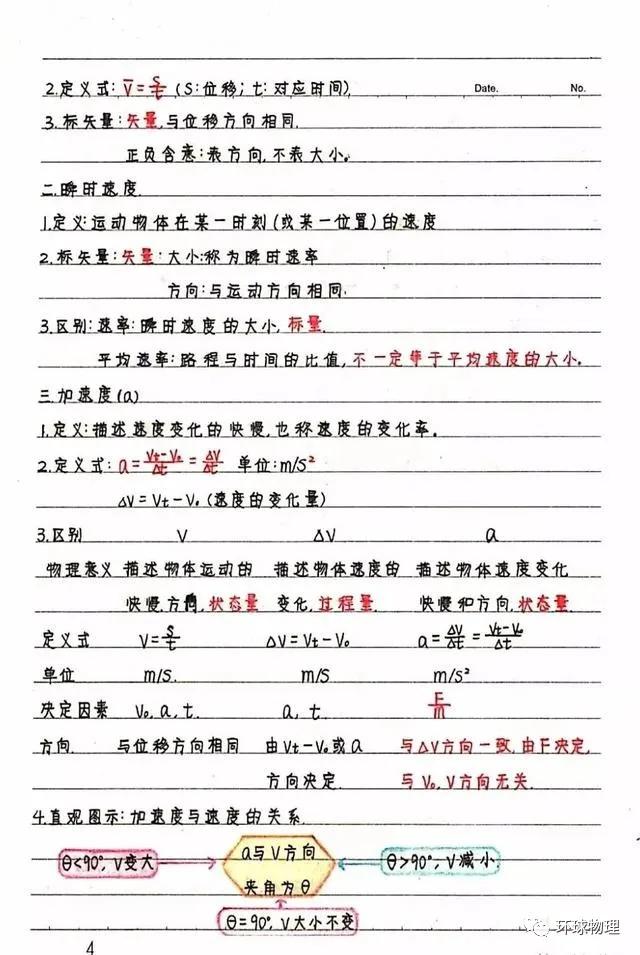 Date. No.
2.定义式: V̄=S/t (S:位移; t:对应时间)
3.标矢量:矢量,与位移方向相同.
正负含意:表方向,不表大小。
二.瞬时速度.
1.定义:运动物体在某一时刻(或某一位置)的速度
2.标矢量:矢量:大小:称为瞬时速率
方向:与运动方向相同.
3.区别:速率:瞬时速度的大小,标量.
平均速率:路程与时间的比值,不一定等于平均速度的大小。
三.加速度(a)
1.定义:描述速度变化的快慢,也称速度的变化率。
2.定义式:a=(Vt-V₀)/Δt=ΔV/Δt 单位:m/s²
ΔV=Vt-V₀(速度的变化量)
3.区别 V ΔV a
物理意义 描述物体运动的 描述物体速度的 描述物体速度变化
快慢,方向,状态量 变化,过程量. 快慢和方向,状态量
定义式 V=S/t ΔV=Vt-V₀ a=ΔV/Δt=(Vt-V₀)/Δt
单位 m/s. m/s m/s²
决定因素 V₀,a,t. a,t. F/m
方向. 与位移方向相同 由Vt-V₀或a 与ΔV方向一致,由F决定,
方向决定. 与V₀,V方向无关.
4.直观图示:加速度与速度的关系.
θ<90°,V变大 a与V方向 θ>90°,V减小
夹角为θ
θ=90°,V大小不变
4
环球物理